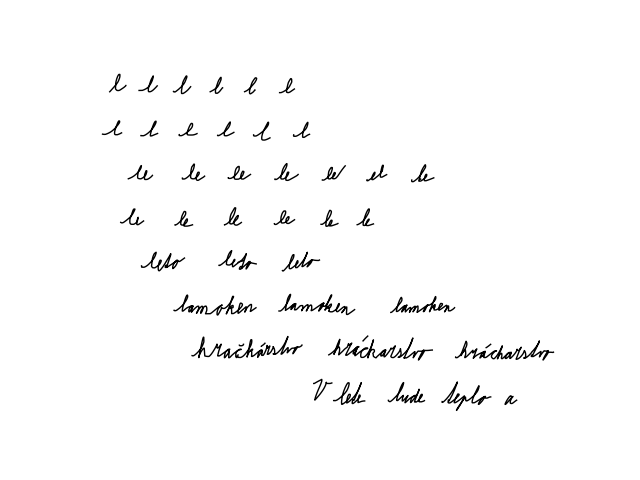 l l l l l l
l l l l l l
le le le le le el le
le le le le le le
leto leto leto
lamoken lamoken lamoken
hračhárstvo hráčharstvo hráchárstvo
V lete lude teplo a